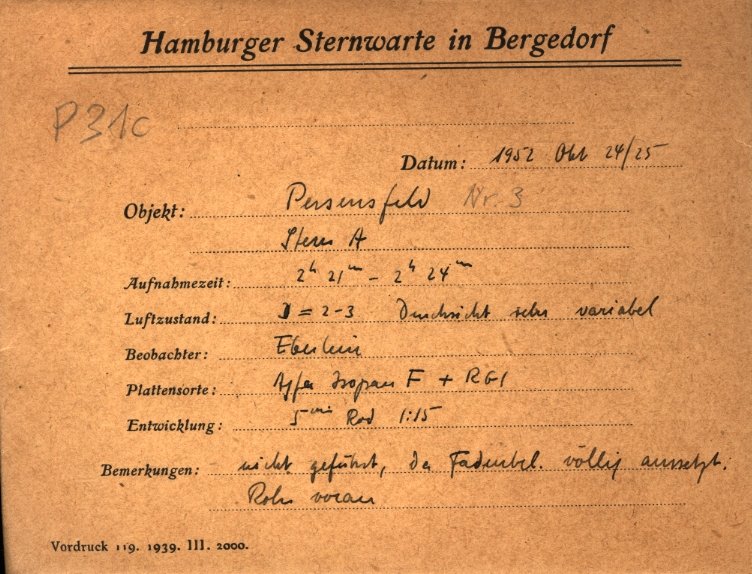 Hamburger Sternwarte in Bergedorf
P31c
Datum: 1952 Okt 24/25
Objekt: Perseusfeld Nr. 3
Stereo A
Aufnahmezeit: 2h 21m - 2h 24m
Luftzustand: = 2-3 Durchsicht sehr variabel
Beobachter: Eberlein
Plattensorte: Agfa Isopan F + RG1
Entwicklung: 5min Rod 1:15
Bemerkungen: nicht geführt, da Fadenbel. völlig aussetzt.
Rohr voran
Vordruck 119. 1939. III. 2000.